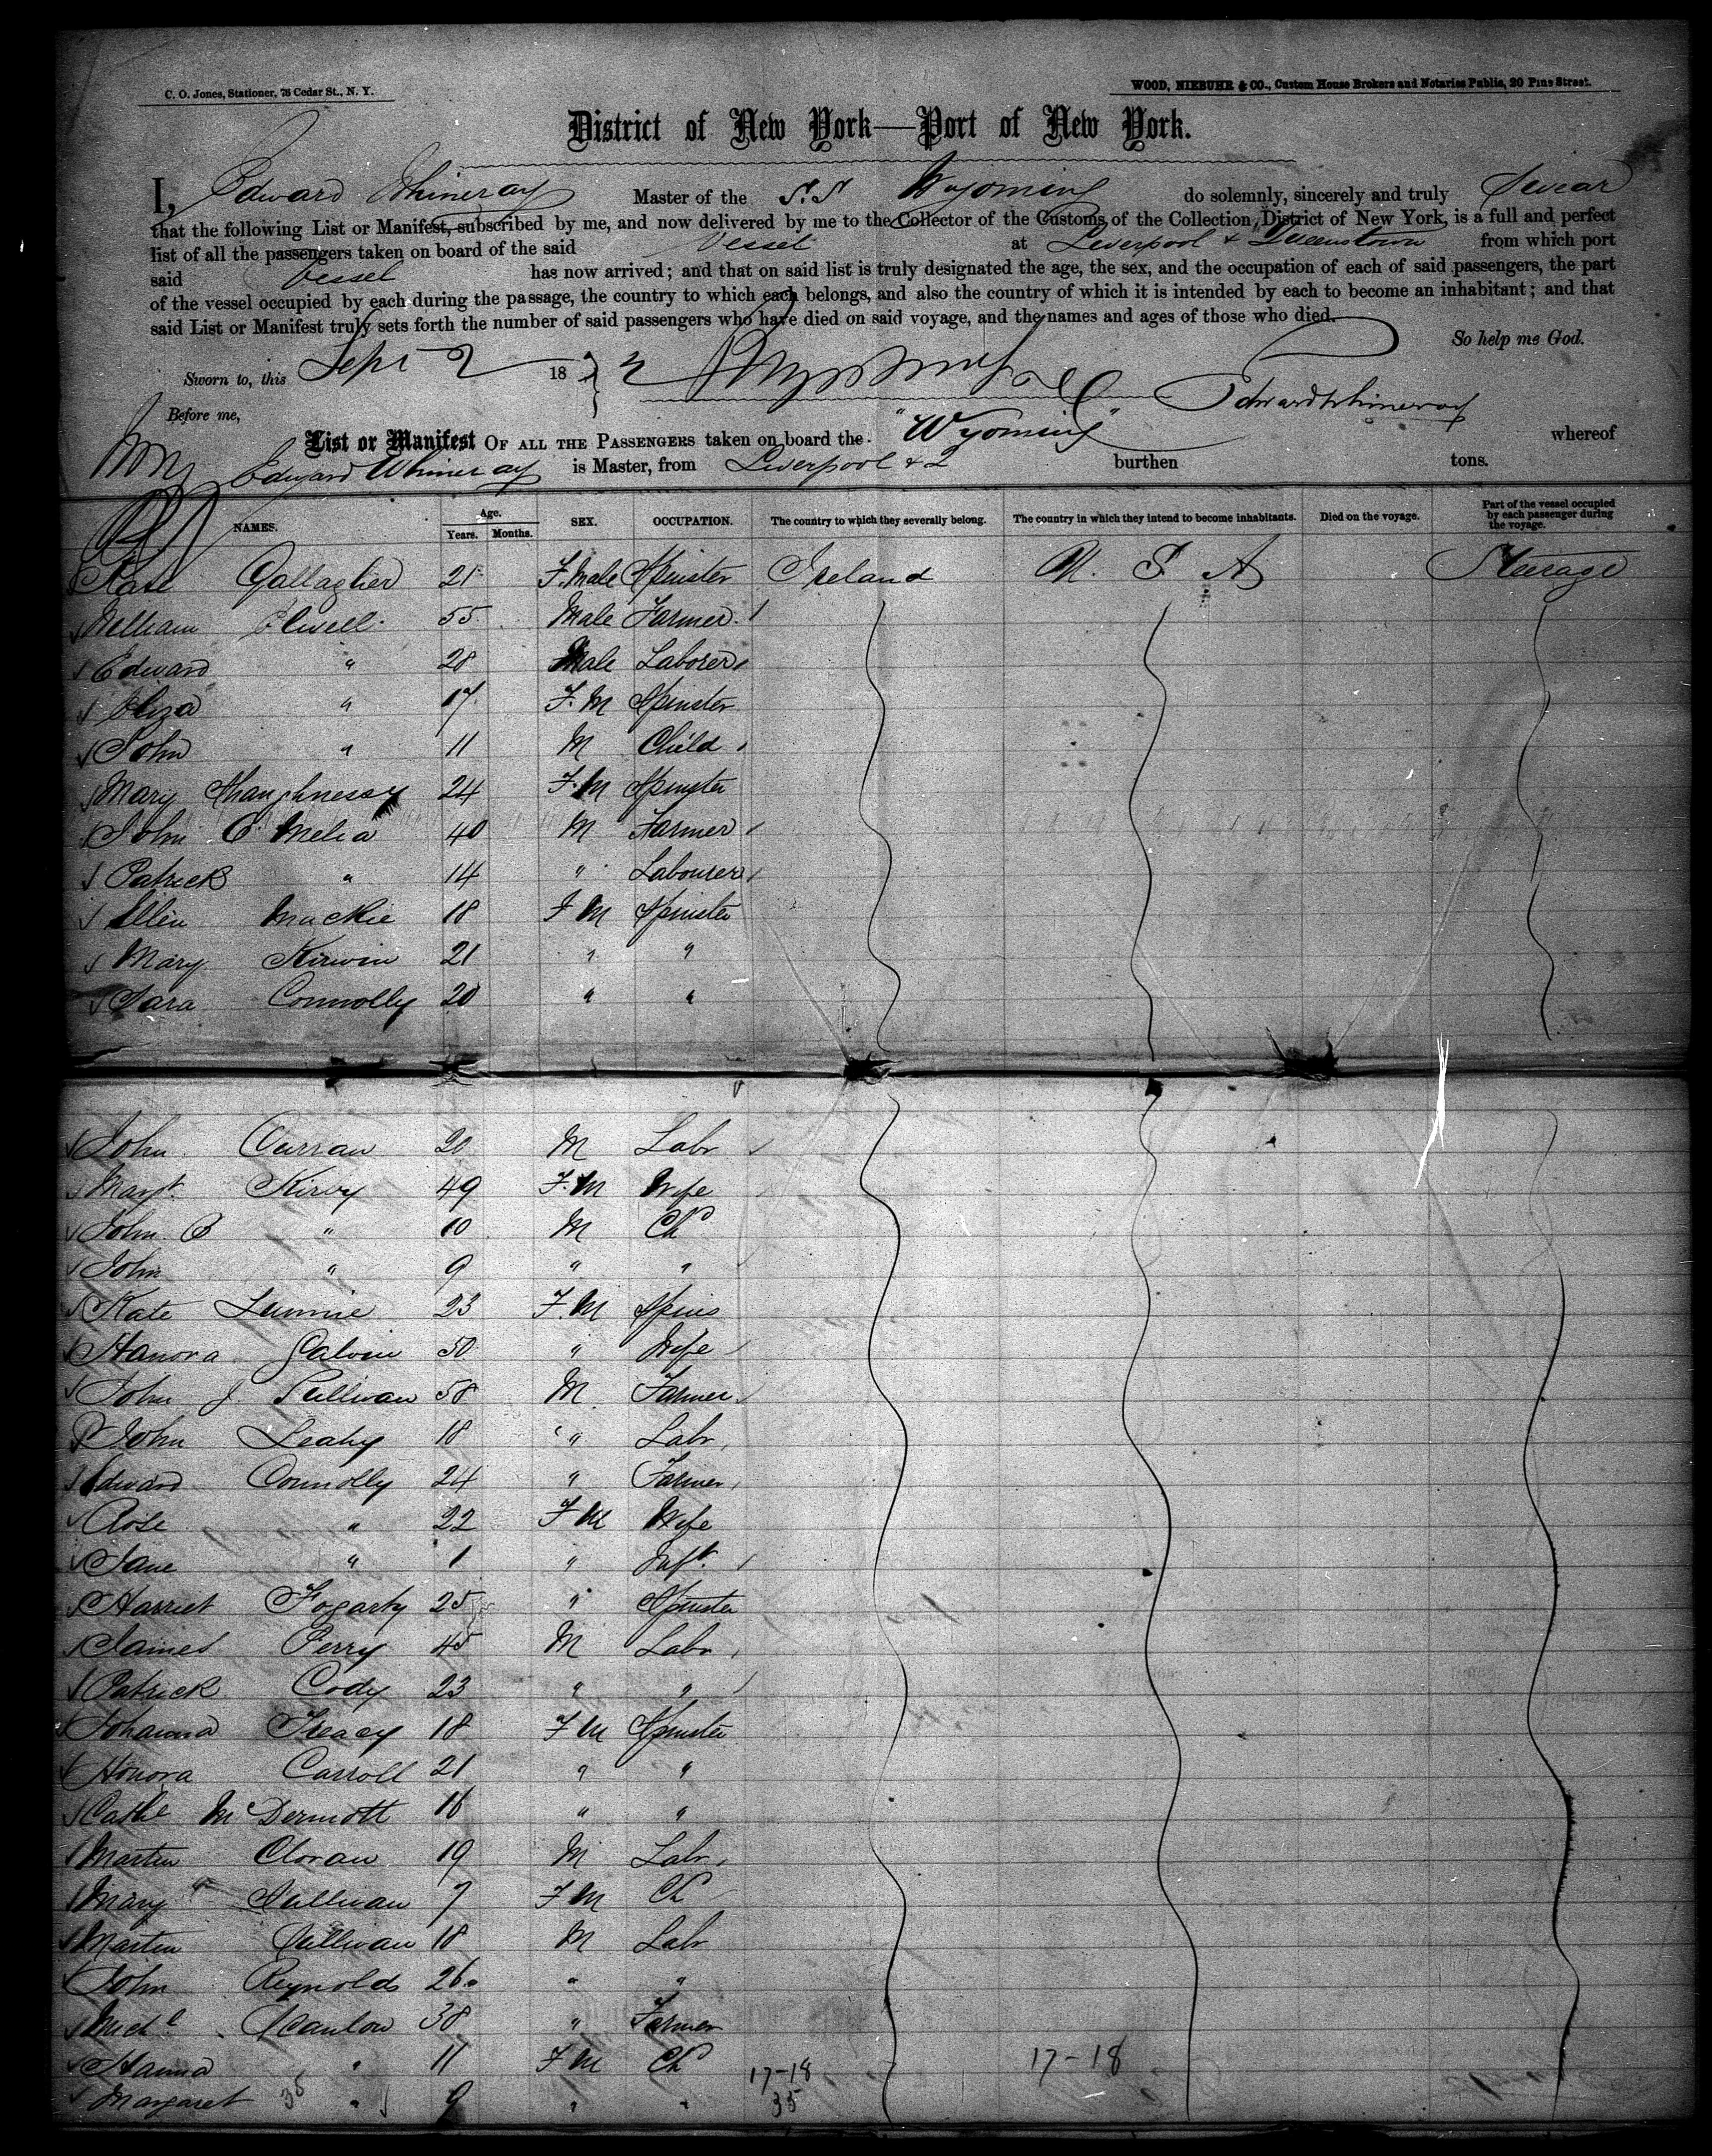 C. O. Jones, Stationer, 76 Cedar St., N. Y.
WOOD, NIEBUHR & CO., Custom House Brokers and Notaries Public, 20 Pine Street.
District of New York—Port of New York.
I, Edward Whineray Master of the S.S Wyoming do solemnly, sincerely and truly Swear
that the following List or Manifest, subscribed by me, and now delivered by me to the Collector of the Customs of the Collection District of New York, is a full and perfect
list of all the passengers taken on board of the said Vessel at Liverpool & Queenstown from which port
said Vessel has now arrived; and that on said list is truly designated the age, the sex, and the occupation of each of said passengers, the part
of the vessel occupied by each during the passage, the country to which each belongs, and also the country of which it is intended by each to become an inhabitant; and that
said List or Manifest truly sets forth the number of said passengers who have died on said voyage, and the names and ages of those who died.
So help me God.
Sworn to, this Sept 2 18
Edward Whineray
Before me,
List or Manifest OF ALL THE PASSENGERS taken on board the "Wyoming" whereof
Edward Whineray is Master, from Liverpool & Q burthen tons.
NAMES. Age. Years. Months. SEX. OCCUPATION. The country to which they severally belong. The country in which they intend to become inhabitants. Died on the voyage. Part of the vessel occupied by each passenger during the voyage.
Kate Gallagher 21 F.Male Spinster Ireland U. S. A Steerage
William Elwell 55 Male Farmer
Edward " 28 Male Laborer
Eliza " 17 F.M Spinster
John " 11 M Child
Mary Shaughnessy 24 F.M Spinster
John O'Melia 40 M Farmer
Patrick " 14 " Labourer
Ellen Mackie 18 F M Spinster
Mary Kirwin 21 " "
Sara Connolly 20 " "
John Curran 20 M Labr
Margt. Kirby 49 F.M Wife
John " 10 M Ch
John " 9 " "
Kate 23 F.M Spins
Hanora Galvin 50 " Wife
John J. Sullivan 58 M Farmer
John Leahy 18 " Labr
Edward Connolly 24 " Farmer
Rose " 22 F M Wife
Jane " 1 " Inft.
Harriet Fogarty 25 " Spinster
James Perry 45 M Labr
Patrick Cody 23 " "
Johanna Treacy 18 F M Spinster
Honora Carroll 21 " "
Cathe McDermott 16 " "
Martin Cloran 19 M Labr
Mary Sullivan 7 F M Ch
Martin Sullivan 18 M Labr
John Reynolds 26 " "
Michl Scanlon 38 " Farmer
Hanna " 11 F M Ch 17-18 17-18
Margaret 35 " 9 " " 35